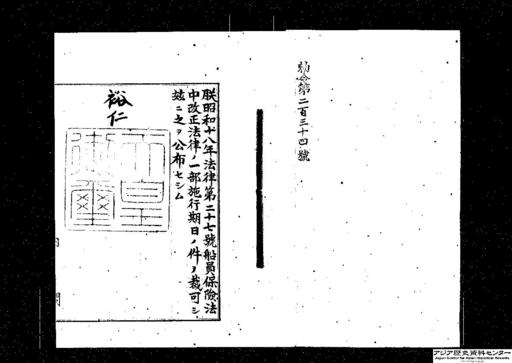 勅令第二百三十四號
朕昭和十八年法律第二十七號船員保險法
中改正法律ノ一部施行期日ノ件ヲ裁可シ
玆ニ之ヲ公布セシム
裕仁
天皇
御璽
内 閣
アジア歴史資料センター
Japan Center for Asian Historical Records